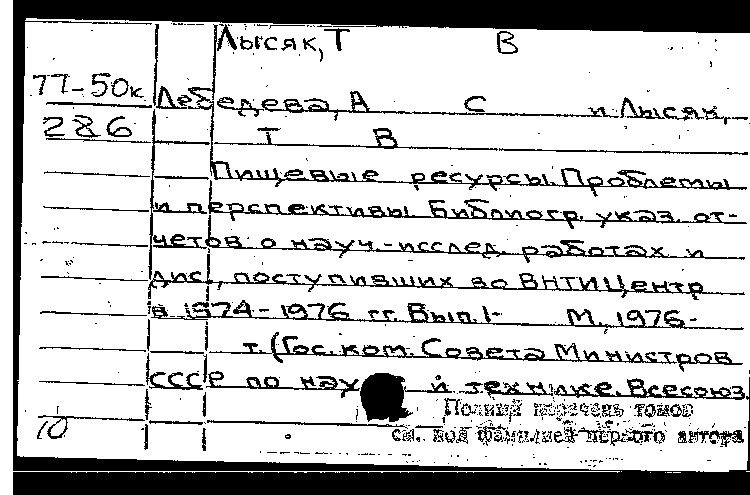 Лысяк, Т В
77-50к Лебедева, А С и Лысяк,
286 Т В
Пищевые ресурсы. Проблемы
и перспективы. Библиогр. указ. от-
четов о науч.-исслед. работах и
дис., поступивших во ВНТИЦентр
в 1974-1976 гг. Вып. 1- М., 1976-
т. (Гос. ком. Совета Министров
СССР по нау и технике. Всесоюз.
Полный перечень томов
10 см. под фамилией первого автора